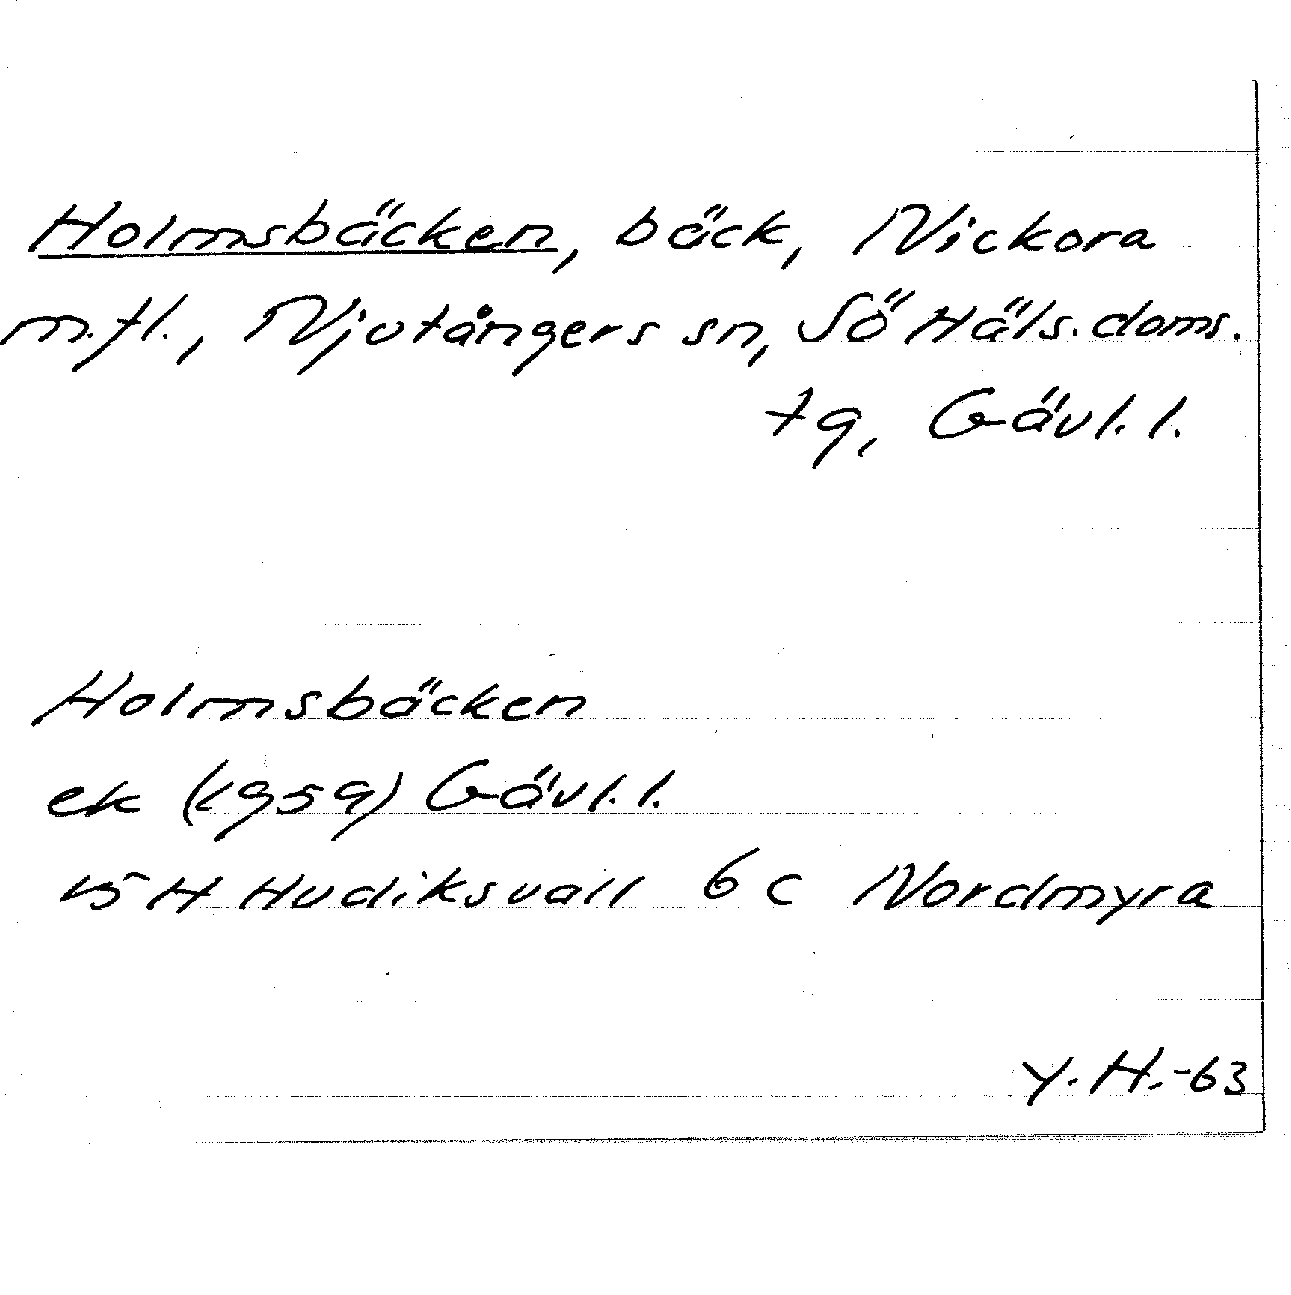 Holmsbäcken, bäck, Nickora
m.fl., Njutångers sn, Sö Häls. doms.
tg, Gävl. l.
Holmsbäcken
ek (1959) Gävl. l.
15 H Hudiksvall 6 c Nordmyra
Y. H. -63